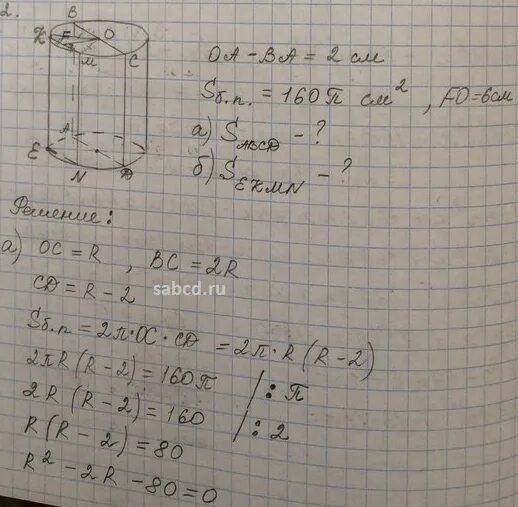 2.
B
K F O
M C
A
E
N D
OA - BA = 2 см
Sб.п. = 160π см², FO = 6см
а) S_ABCD - ?
б) S_EKMN - ?
Решение:
а) OC = R, BC = 2R
CD = R - 2
sabcd.ru
Sб.п. = 2π·OC·CD = 2π·R(R-2)
2πR(R-2) = 160π /: π
2R(R-2) = 160 /: 2
R(R-2) = 80
R² - 2R - 80 = 0